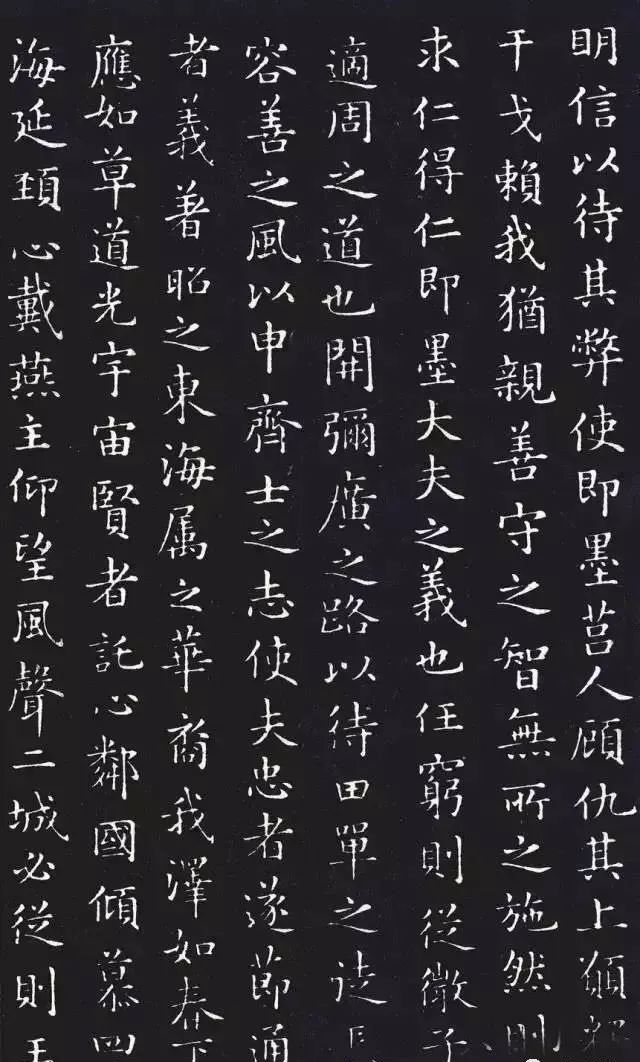 明信以待其弊使即墨莒人顧仇其上願
干戈賴我猶親善守之智無所之施然則
求仁得仁即墨大夫之義也任窮則從微子
適周之道也開彌廣之路以待田單之徒長
容善之風以申齊士之志使夫忠者遂節通
者義著昭之東海属之華裔我澤如春下
應如草道光宇宙賢者託心鄰國傾慕四
海延頚心戴燕主仰望風聲二城必從則王